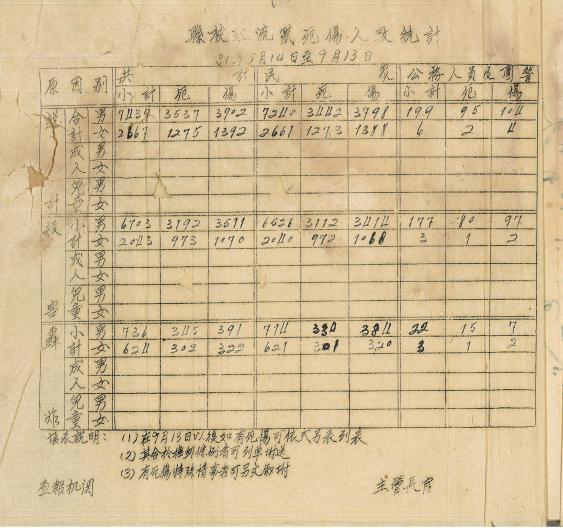 縣被 流竄死傷人數統計
31年 月14日至9月13日
原因別 共計 民眾 公務人員及團警
小計 死 傷 小計 死 傷 小計 死 傷
總計 合計 男 7439 3537 3902 7240 3442 3798 199 95 104
女 2667 1275 1392 2661 1273 1388 6 2 4
成人 男
女
兒童 男
女
殺害 小計 男 6703 3192 3511 6526 3112 3414 177 80 97
女 2043 973 1070 2040 972 1068 3 1 2
成人 男
女
兒童 男
女
轟炸 小計 男 736 345 391 714 384 22 15 7
女 624 302 322 621 301 320 3 1 2
成人 男
女
兒童 男
女
填表說明：(1)在9月13日以後如有死傷可依式另表列表
(2)其合於撫卹條例者可列單
(3)有死傷特殊情事者可另文敘
查報机关 主管長官